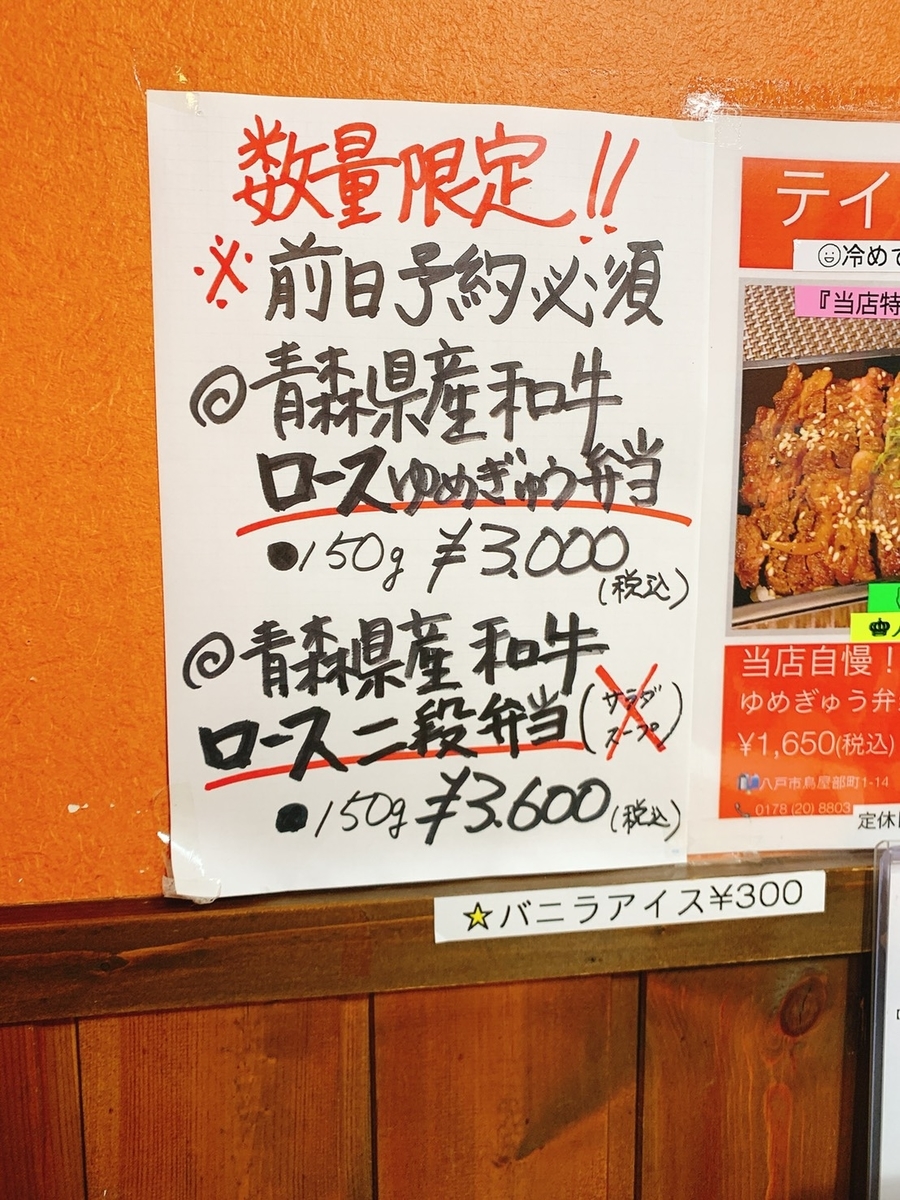 数量限定!!
※前日予約必須
◎青森県産和牛
ロースゆめぎゅう弁当
●150g ¥3.000
(税込)
◎青森県産和牛
ロース二段弁当(サラダ
スープ)
●150g ¥3.600(税込)
☆バニラアイス¥300
テイ
冷めて
『当店特
当店自慢!
ゆめぎゅう弁
¥1,650(税込)
八戸市鳥屋部町1-14
0178 (20) 8803
定休